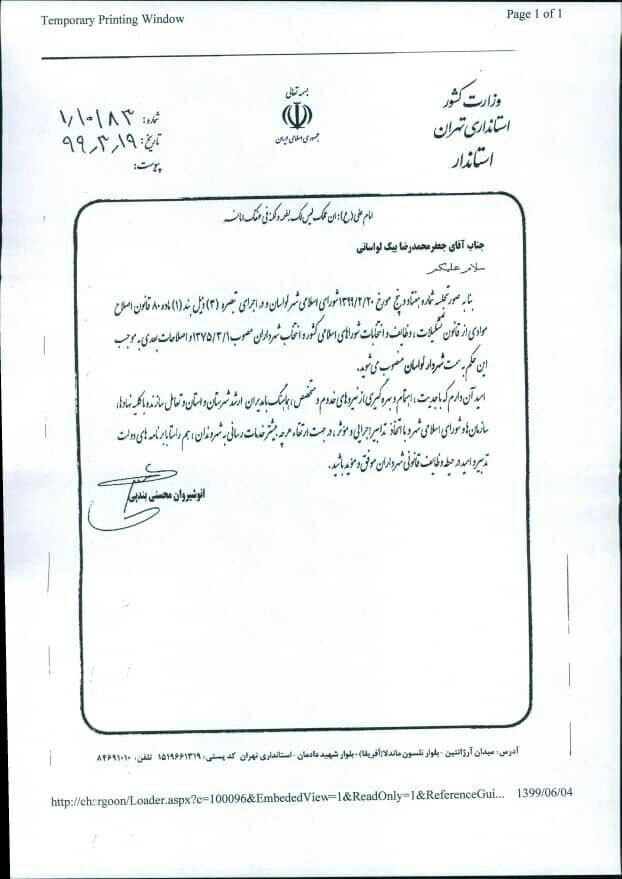 Temporary Printing Window
Page 1 of 1
بسمه تعالی
جمهوری اسلامی ایران
وزارت کشور
استانداری تهران
استاندار
شماره: ۱/۱۰۱۸۳
تاریخ: ۹۹٫۳٫۱۹
پیوست:
امام علی (ع): ان عملک لیس لک بطعمه ولکنه فی عنقک امانه
جناب آقای جعفر محمدرضا بیگ لواسانی
سلام علیکم
بنا به صورتجلسه شماره هفتاد و پنج مورخ ۱۳۹۹/۲/۲۰ شورای اسلامی شهر لواسان و در اجرای تبصره (۳) ذیل بند (۱) ماده ۸۰ قانون اصلاح
موادی از قانون تشکیلات، وظایف و انتخابات شوراهای اسلامی کشور و انتخاب شهرداران مصوب ۱۳۷۵/۳/۱ و اصلاحات بعدی به موجب
این حکم به سمت شهردار لواسان منصوب می‌شوید.
امید آن دارم که با جدیت، اهتمام و بهره گیری از نیروهای خدوم و متخصص، هماهنگ با مدیران ارشد شهرستان و استان و تعامل سازنده با کلیه نهادها،
سازمان‌ها و شورای اسلامی شهر و با اتخاذ تدابیر اجرایی و مؤثر، در جهت ارتقاء هرچه بیشتر خدمات رسانی به شهروندان، هم راستا با برنامه های دولت
تدبیر و امید در حیطه وظایف قانونی شهرداران موفق و مؤید باشید.
انوشیروان محسنی بندپی
آدرس: میدان آرژانتین - بلوار نلسون ماندلا(آفریقا) - بلوار شهید دادمان - استانداری تهران کد پستی: ۱۵۱۹۶۶۱۳۱۹ تلفن: ۸۴۶۹۱۰۱۰
http://chargoon/Loader.aspx?c=100096&EmbededView=1&ReadOnly=1&ReferenceGui... 1399/06/04